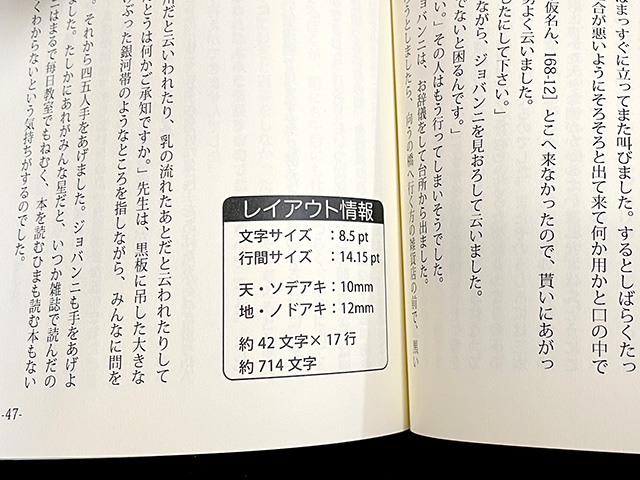 はまっすぐに立ってまた叫びました。するとしばらくたっ
合が悪いようにそろそろと出て来て何か用かと口の中で
仮名ん、168-12］とこへ来なかったので、貰いにあがっ
よく云いました。
したにして下さい。」
ながら、ジョバンニを見おろして云いました。
でないと困るんです。」
い。」その人はもう行ってしまいそうでした。
ンニは、お辞儀をして台所から出ました。
うとしましたら、向うの橋へ行く方の雑貨店の前で、黒い
レイアウト情報
文字サイズ ：8.5 pt
行間サイズ ：14.15 pt
天・ソデアキ：10mm
地・ノドアキ：12mm
約 42 文字× 17 行
約 714 文字
川だと云いわれたり、乳の流れたあとだと云われたりして
とうは何かご承知ですか。」先生は、黒板に吊した大きな
けぶった銀河帯のようなところを指しながら、みんなに問を
。それから四五人手をあげました。ジョバンニも手をあげよ
ました。たしかにあれがみんな星だと、いつか雑誌で読んだの
ニはまるで毎日教室でもねむく、本を読むひまも読む本もない
くわからないという気持ちがするのでした。
-47-